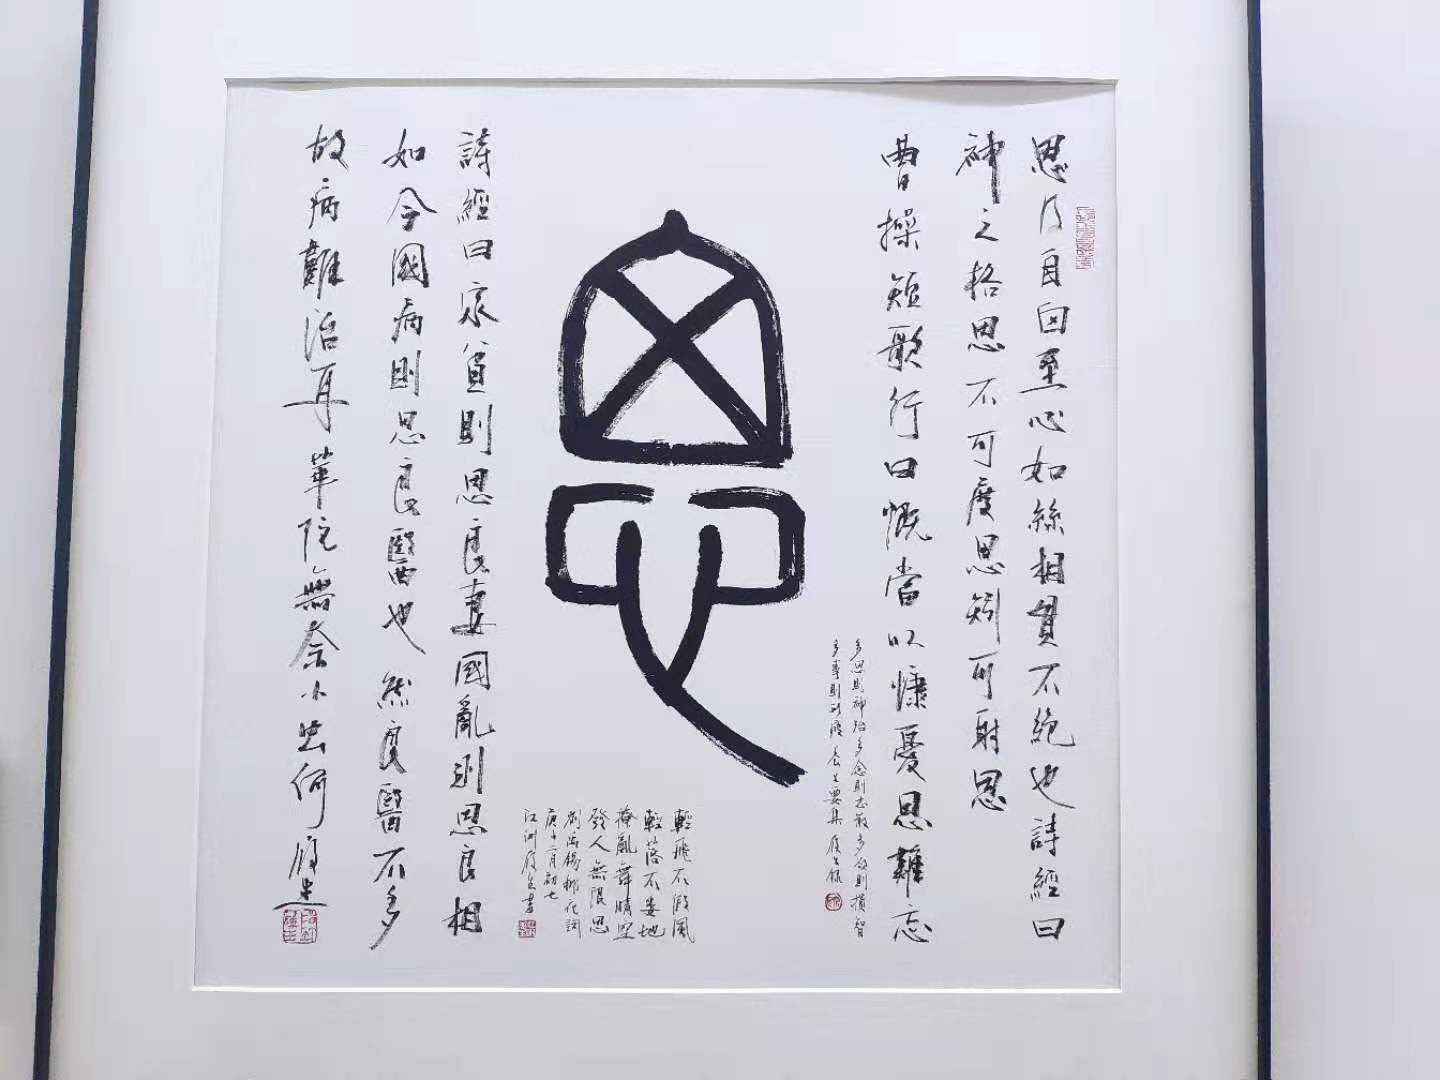 思乃自囟至心如絲相貫不絕也詩經曰
神之格思不可度思矧可射思
曹操短歌行曰慨當以慷憂思難忘
多思則神殆多念則志散多欲則損智
多事則形疲養生要集履生錄
思
輕飛不假風
輕落不委地
撩亂舞晴空
發人無限思
劉禹錫柳花詞
庚子二月初七
江洲履生書
詩經曰家貧則思良妻國亂則思良相
如今國病則思良醫也然良醫不多
故病難治耳華陀無奈小虫何履生